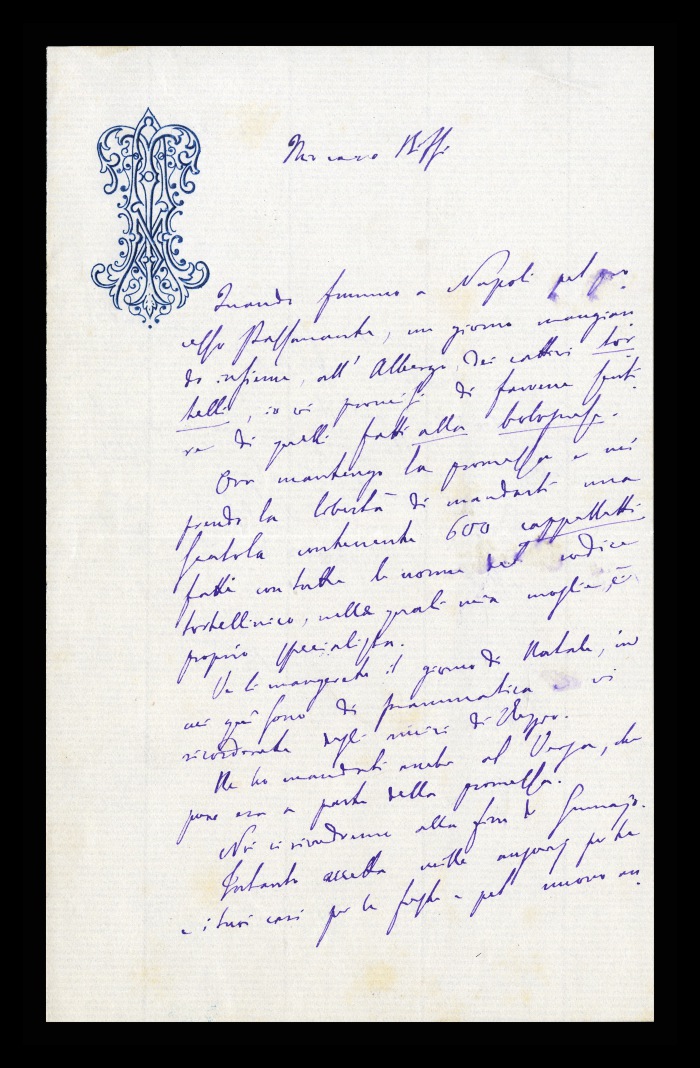 Mio caro Biffi
Quando fummo a Napoli pel pro
cesso Passanante, un giorno mangian
do insieme, all'Albergo, dei cattivi tor
telli, io vi promisi di farvene senti
re di quelli fatti alla bolognese.
Ora mantengo la promessa e mi
prendo la libertà di mandarti una
scatola contenente 600 cappelletti
fatti con tutte le norme del codice
tortellinico, nelle quali mia moglie è
proprio specialista.
Ve li mangerete il giorno di Natale, in
cui qui sono di prammatica e vi
ricorderete degli amici di Reggio.
Ne ho mandati anche al Verga, che
pure era a parte della promessa.
Noi ci rivedremo alla fine di Gennajo.
Intanto accetta mille augurj per te
e i tuoi cari per le feste e pel nuovo an